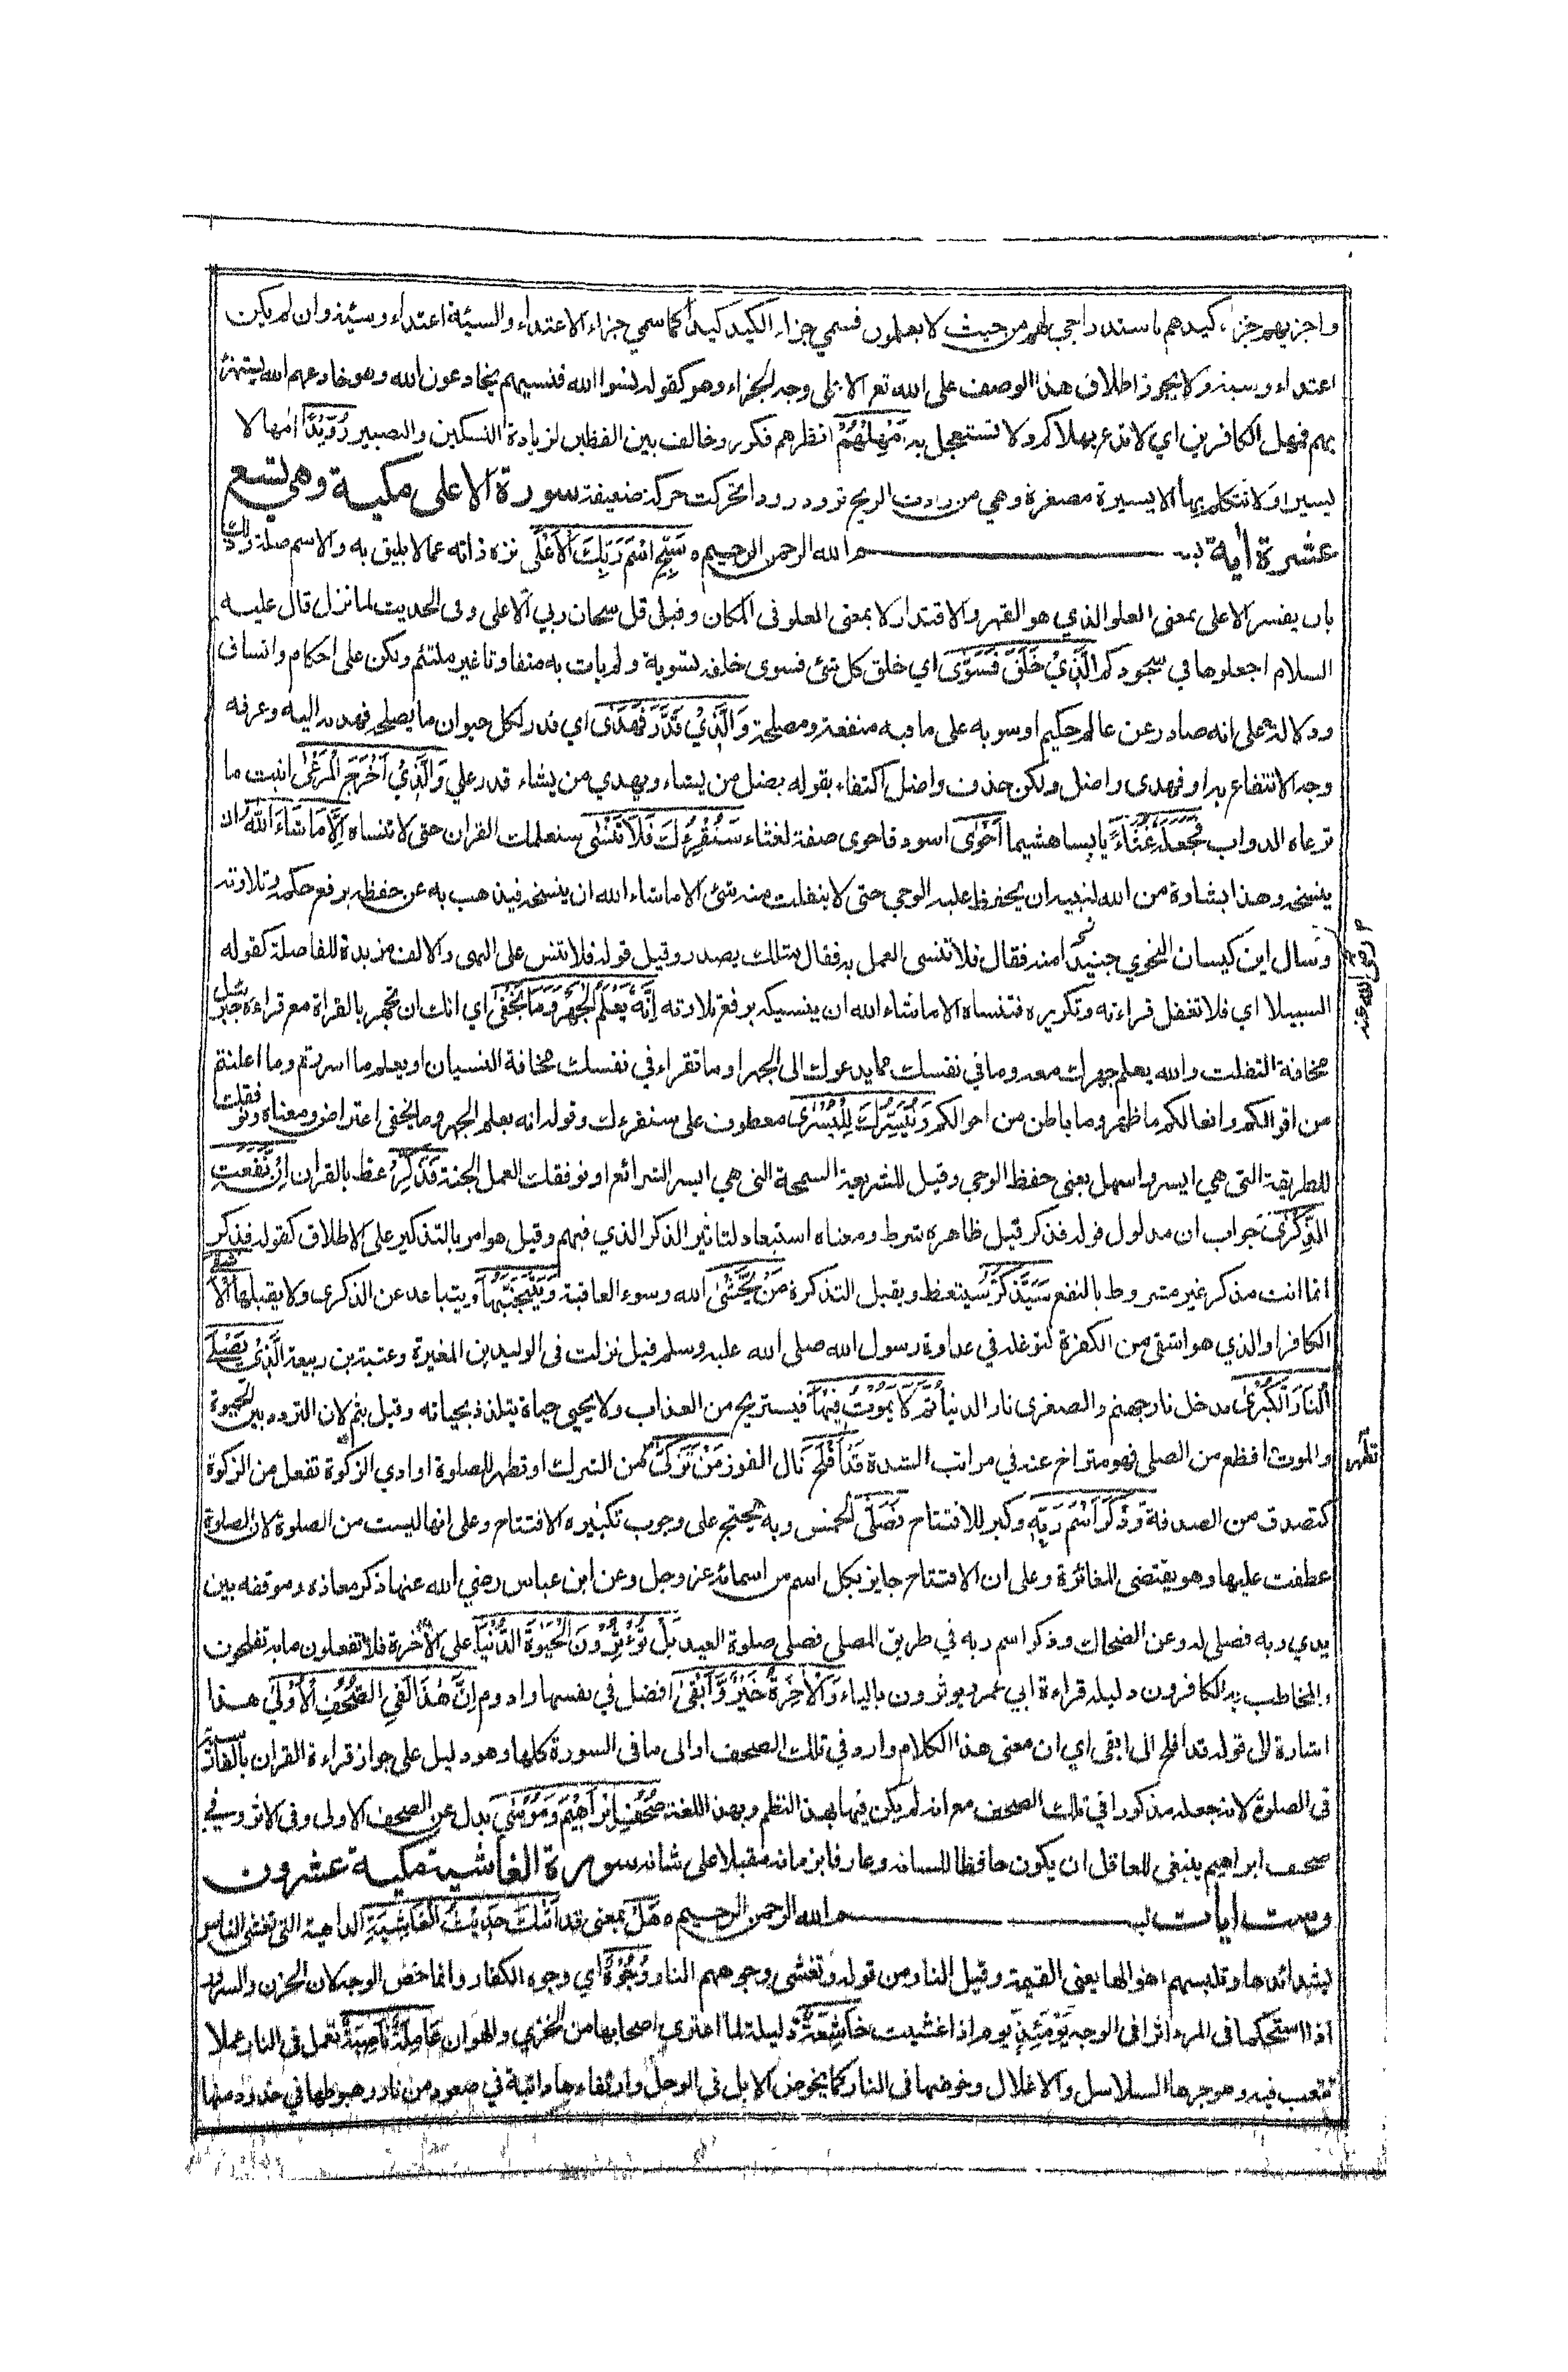 واجزيهم جزاء كيدهم باستدراجي لهم من حيث لا يعلمون فسمي جزاء الكيد كيدا كما سمي جزاء الاعتداء والسيئة اعتداء وسيئة وان لم يكن
اعتداء وسيئة ولا يجوز اطلاق هذا الوصف على الله تع الا على وجه الجزاء وهو كقوله نسوا الله فنسيهم يخادعون الله وهو خادعهم الله يستهزئ
بهم فمهل الكافرين اي لا تدع بهلاكهم ولا تستعجل به اَمْهِلْهُمْ انظرهم فكرر وخالف بين اللفظين لزيادة التسكين والتصبير رُوَيْدًا امهالا
يسيرا ولا يتكلم بها الا يسيرة مصغرة وهي من رادت الريح ترود رودا تحركت حركة ضعيفة سورة الاعلى مكية وهي تسع
عشرة اية بسم الله الرحمن الرحيم ه سَبِّحِ اسْمَ رَبِّكَ الْاَعْلَى نزه ذاته عما لا يليق به والاسم صلة وذلك
بان يفسر الاعلى بمعنى العلو الذي هو القهر والاقتدار لا بمعنى العلو فى المكان وقيل قل سبحان ربي الاعلى وفى الحديث لما نزل قال عليه
السلام اجعلوها في سجودكم الَّذِيْ خَلَقَ فَسَوّٰى اي خلق كل شئ فسوى خلقه تسوية ولم يات به متفاوتا غير ملتئم ولكن على احكام واتساق
ودلالة على انه صادر عن عالم حكيم او سويه على ما فيه منفعة ومصلحة وَالَّذِيْ قَدَّرَ فَهَدٰى اي قدر لكل حيوان ما يصلحه فهداه اليه وعرفه
وجه الانتفاع به او فهدى واضل ولكن حذف واضل اكتفاء بقوله يضل من يشاء ويهدي من يشاء قدر علي وَالَّذِيْ اَخْرَجَ الْمَرْعٰى انبت ما
ترعاه الدواب فَجَعَلَهُ غُثَاءً يابسا هشيما اَحْوٰى اسود فاحوى صفة لغثاء سَنُقْرِئُكَ فَلَا تَنْسٰى سنعلمك القران حتى لا تنساه اِلَّا مَا شَاءَ اللّٰهُ ان
ينسخه وهذا بشارة من الله لنبيه ان يحفظ عليه الوحي حتى لا ينفلت منه شئ الا ما شاء الله ان ينسخه فيذهب به عن حفظه برفع حكمه وتلاوته
وسال ابن كيسان النحوي جنيدا عنه فقال فلا تنسى العمل به فقال مثلك يصدر وقيل قوله فلا تنس على النهى والالف مزيدة للفاصلة كقوله
السبيلا اي فلا تغفل قراءته وتكريره فتنساه الا ما شاء الله ان ينسيكه برفع تلاوته اِنَّهُ يَعْلَمُ الْجَهْرَ وَمَا يَخْفٰى اي انك ان تجهر بالقراة مع قراءة جبرئيل
مخافة التفلت والله يعلم جهرك معه وما في نفسك مما يدعوك الى الجهر او ما تقراء في نفسك مخافة النسيان او يعلم ما اسررتم وما اعلنتم
من اقوالكم وافعالكم ما ظهر وما باطن من احوالكم وَنُيَسِّرُكَ لِلْيُسْرٰى معطوف على سنقرءك وقوله انه يعلم الجهر وما يخفى اعتراض ومعناه ونوفقك
للطريقة التى هي ايسر واسهل يعنى حفظ الوحي وقيل للشريعة السمحة التى هي ايسر الشرائع او نوفقك العمل الجنة فَذَكِّرْ عظ بالقران اِنْ نَّفَعَتِ
الذِّكْرٰى جواب ان مدلول قوله فذكر قيل ظاهره شرط ومعناه استبعاد لتاثير الذكر الذي فيهم وقيل هو امر بالتذكير على الاطلاق كقوله فذكر
انما انت مذكر غير مشروط بالنفع سَيَذَّكَّرُ سيتعظ ويقبل التذكرة مَنْ يَّخْشٰى الله وسوء العاقبة وَيَتَجَنَّبُهَا ويتباعد عن الذكرى ولا يقبلها الْاَشْقَى
الكافر او الذي هو اشقى من الكفرة لتوغله في عداوة رسول الله صلى الله عليه وسلم قيل نزلت فى الوليد بن المغيرة وعتبة بن ربيعة الَّذِيْ يَصْلَى
النَّارَ الْكُبْرٰى مدخل نار جهنم والصغرى نار الدنيا ثُمَّ لَا يَمُوْتُ فِيْهَا فيستريح من العذاب ولا يحيى حياة يتلذذ بحياته وقيل بثم لان التردد بين الحيوة
والموت افظع من الصلى فهو متراخ عنه في مراتب الشدة قَدْ اَفْلَحَ نال الفوز مَنْ تَزَكّٰى من الشرك او تطهر للصلوة او ادي الزكوة تفعل من الزكوة
كتصدق من الصدقة وَذَكَرَ اسْمَ رَبِّهٖ وكبر للافتتاح فَصَلّٰى الخمس وبه يحتج على وجوب تكبيره الافتتاح وعلى انها ليست من الصلوة لان الصلوة
عطفت عليها وهو يقتضى المغائرة وعلى ان الافتتاح جايز بكل اسم من اسمائه عز وجل وعن ابن عباس رضي الله عنهما ذكر معاده وموقفه بين
يدي ربه فصلى له وعن الضحاك وذكر اسم ربه في طريق المصلى فصلى صلوة العيد بَلْ تُؤْثِرُوْنَ الْحَيٰوةَ الدُّنْيَا على الاخرة فلا تفعلون ما به تفلحون
والمخاطب به الكافرون دليله قراءة ابي عمرو يوثرون بالياء وَالْاٰخِرَةُ خَيْرٌ وَّاَبْقٰى افضل في نفسها وادوم اِنَّ هٰذَا لَفِى الصُّحُفِ الْاُوْلٰى هذا
اشارة الى قوله قد افلح الى ابقى اي ان معنى هذا الكلام وارد في تلك الصحف او الى ما فى السورة كلها وهو دليل على جواز قراءة القران بالفارسية
فى الصلوة لانه جعله مذكورا في تلك الصحف مع انه لم يكن فيها بهذ النظم وبهذ اللغة صُحُفِ اِبْرَاهِيْمَ وَمُوْسٰى بدل من الصحف الاولى وفى الاثر وفي
صحف ابراهيم ينبغى للعاقل ان يكون حافظا للسانه وعارفا بزمانه مقبلا على شانه سورة الغاشية مكية عشرون
وست ايات بسم الله الرحمن الرحيم ه هَلْ بمعنى قد اَتٰىكَ حَدِيْثُ الْغَاشِيَةِ الداهية التى تغشى الناس
بشدائدها وتلبسهم اهوالها يعنى القيمة وقيل النار من قوله وتغشى وجوههم النار وُجُوْهٌ اي وجوه الكفار وانما خص الوجه لان الحزن والسرور
اذا استحكما فى المرء اثرا فى الوجه يَوْمَئِذٍ يوم اذا غشيت خَاشِعَةٌ ذليلة لما اعترى اصحابها من الخزي والهوان عَامِلَةٌ نَّاصِبَةٌ تعمل فى النار عملا
تتعب فيه وهو جرها السلاسل والاغلال وخوضها فى النار كما يخوض الابل فى الوحل وارتقاءها دائبة في صعود من نار وهبوطها في حدور منها